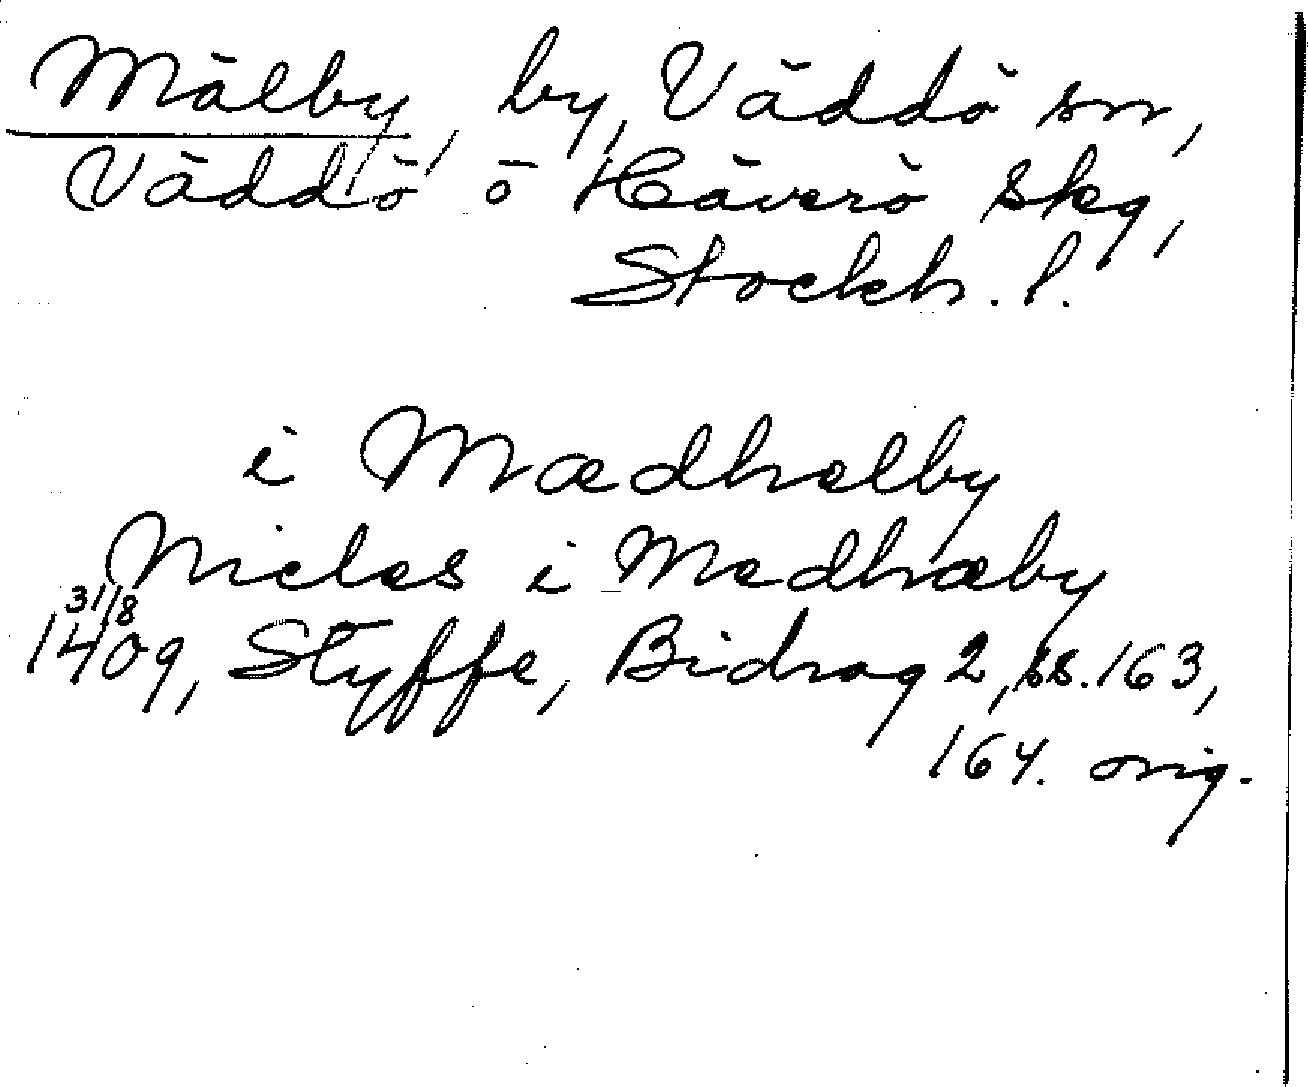 Mälby, by, Väddö sn,
Väddö o Häverö skg,
Stockh. l.
i Mædhælby
Niclas i Medhæby
31/8
1409, Styffe, Bidrag 2, ss. 163,
164. orig.